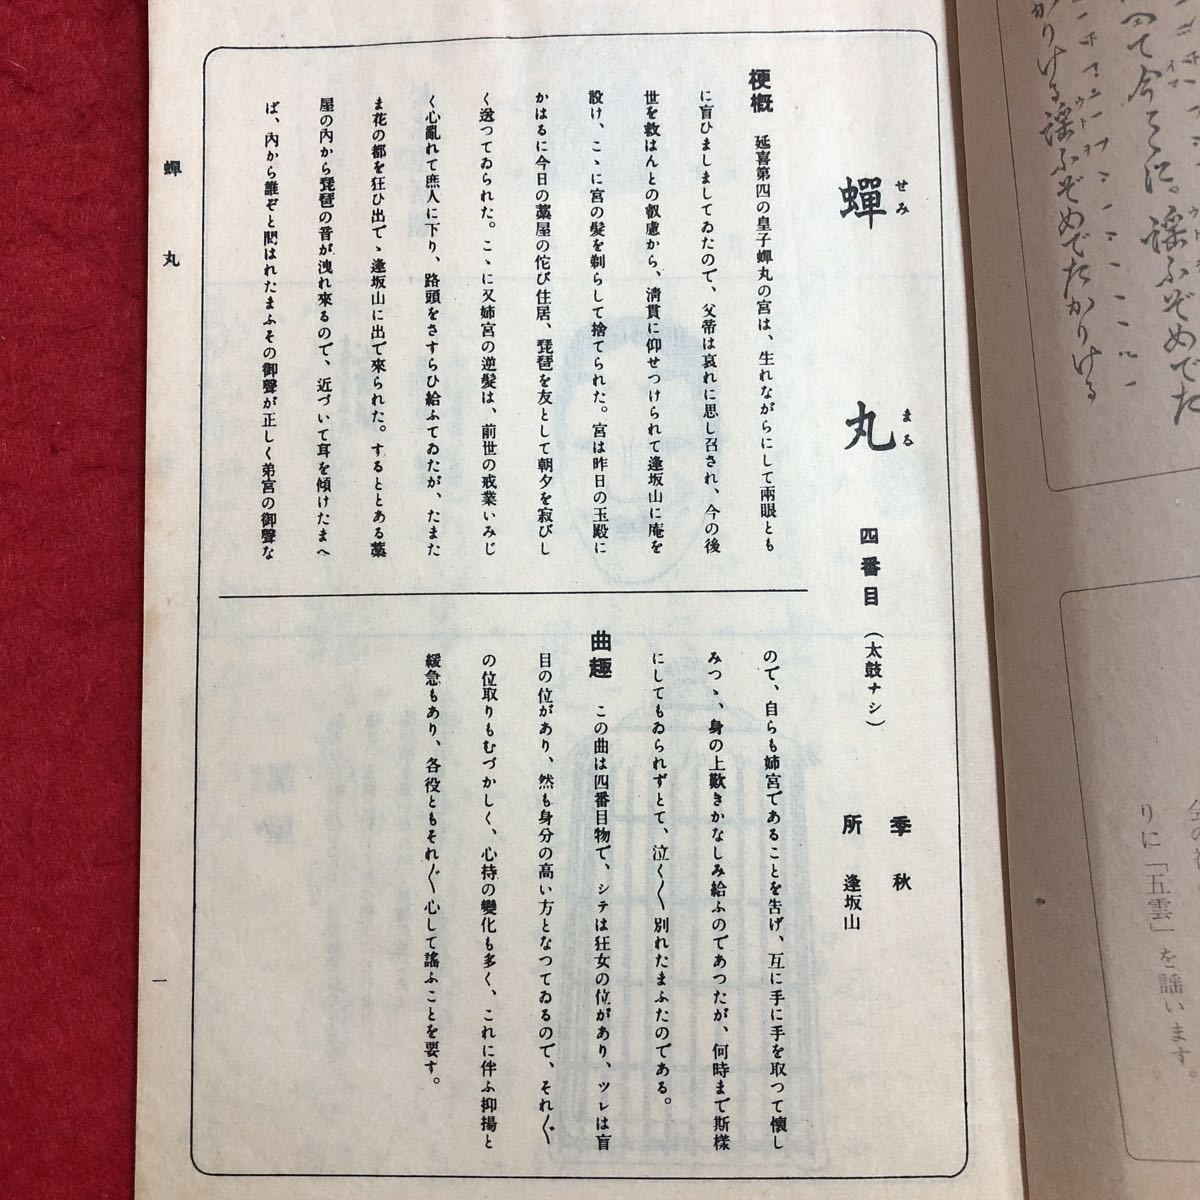 ウト
四て今こゝに。謡ふぞめでた
かりける謡ふぞめでたかりける
りに「五雲」を謡います。
蟬丸
せみ
まる
四番目（太鼓ナシ）
季 秋
所 逢坂山
梗概 延喜第四の皇子蟬丸の宮は、生れながらにして兩眼とも
に盲ひましましてゐたので、父帝は哀れに思し召され、今の後
世を救はんとの叡慮から、淸貫に仰せつけられて逢坂山に庵を
設け、こゝに宮の髮を剃らして捨てられた。宮は昨日の玉殿に
かはるに今日の藁屋の佗び住居、琵琶を友として朝夕を寂びし
く送つてゐられた。こゝに又姉宮の逆髮は、前世の戒業いみじ
く心亂れて庶人に下り、路頭をさすらひ給ふてゐたが、たまた
ま花の都を狂ひ出でゝ逢坂山に出で來られた。するととある藁
屋の內から琵琶の音が洩れ來るので、近づいて耳を傾けたまへ
ば、內から誰ぞと問はれたまふその御聲が正しく弟宮の御聲な
ので、自らも姉宮であることを告げ、互に手に手を取つて懷し
みつゝ、身の上歎きかなしみ給ふのであつたが、何時まで斯樣
にしてもゐられずとて、泣く〱別れたまふたのである。
曲趣 この曲は四番目物で、シテは狂女の位があり、ツレは盲
目の位があり、然も身分の高い方となつてゐるので、それ〲
の位取りもむづかしく、心持の變化も多く、これに伴ふ抑揚と
緩急もあり、各役ともそれ〲心して謠ふことを要す。
蟬丸
一